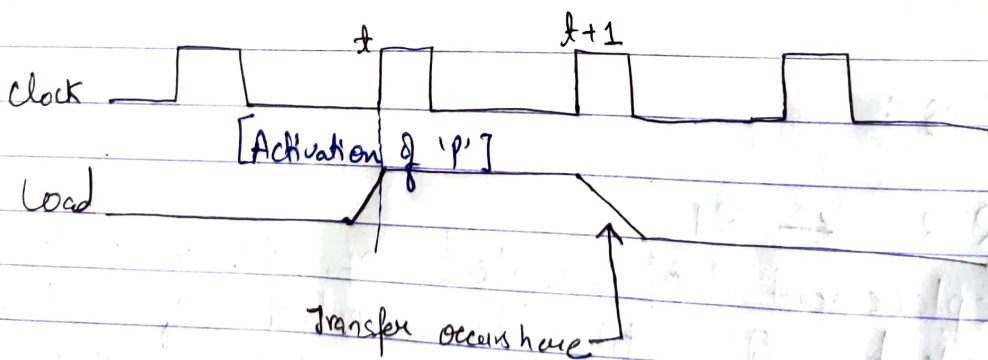 t
t+1
Clock
[Activation of 'P']
Load
Transfer occurs here